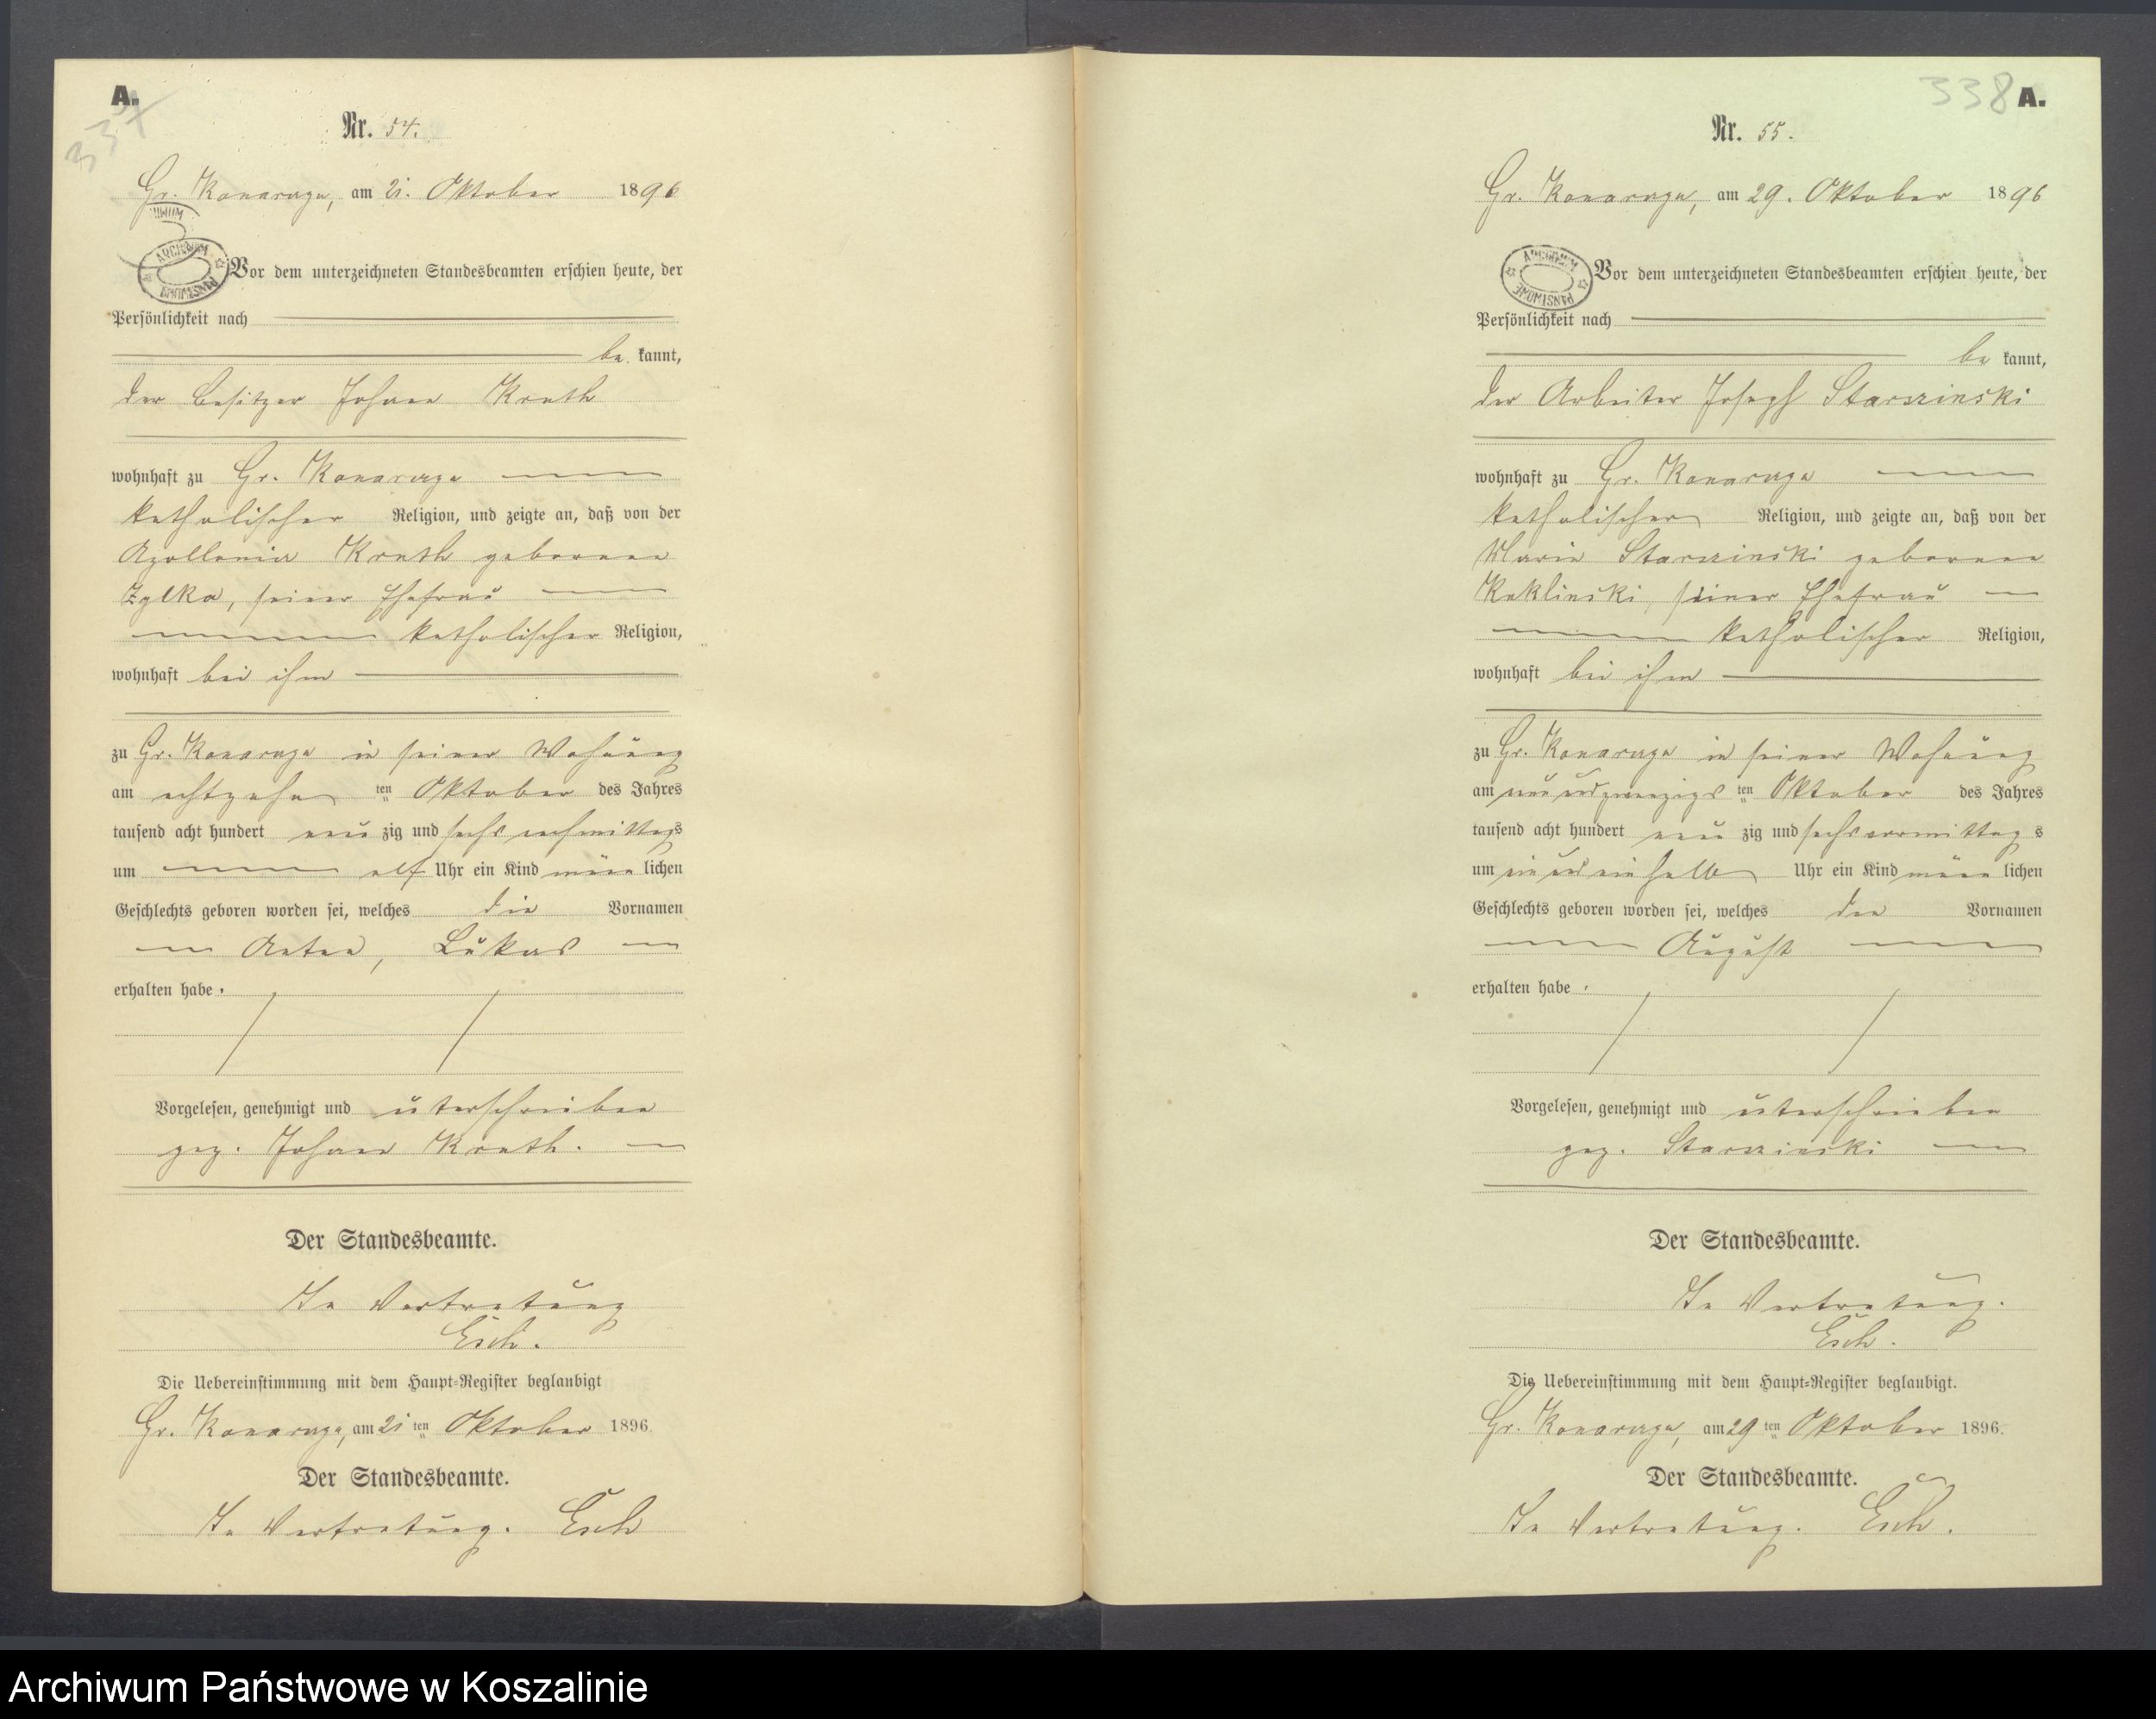 A.
337
Nr. 54.
Gr. Konarczyn, am 21. Oktober 1896
ARCHIWUM PAŃSTWOWE
Vor dem unterzeichneten Standesbeamten erschien heute, der
Persönlichkeit nach
be kannt,
der Besitzer Johann Knuth
wohnhaft zu Gr. Konarczyn
katholischer Religion, und zeigte an, daß von der
Apollonia Knuth geborenen
Zylka, seiner Ehefrau
katholischer Religion,
wohnhaft bei ihm
zu Gr. Konarczyn in seiner Wohnung
am achtzehn ten Oktober des Jahres
tausend acht hundert neun zig und sechs nachmittags
um elf Uhr ein Kind männ lichen
Geschlechts geboren worden sei, welches die Vornamen
Anton, Lukas
erhalten habe.
Vorgelesen, genehmigt und unterschrieben
gez. Johann Knuth.
Der Standesbeamte.
In Vertretung
Esch.
Die Uebereinstimmung mit dem Haupt-Register beglaubigt
Gr. Konarczyn, am 21 ten Oktober 1896.
Der Standesbeamte.
In Vertretung. Esch
338 A.
Nr. 55.
Gr. Konarczyn, am 29. Oktober 1896
ARCHIWUM PAŃSTWOWE
Vor dem unterzeichneten Standesbeamten erschien heute, der
Persönlichkeit nach
be kannt,
der Arbeiter Joseph Starszinski
wohnhaft zu Gr. Konarczyn
katholischer Religion, und zeigte an, daß von der
Marie Starszinski geborenen
Kuklinski, seiner Ehefrau
katholischer Religion,
wohnhaft bei ihm
zu Gr. Konarczyn in seiner Wohnung
am neun und zwanzigs ten Oktober des Jahres
tausend acht hundert neun zig und sechs vormittag s
um ein und ein halb Uhr ein Kind männ lichen
Geschlechts geboren worden sei, welches den Vornamen
August
erhalten habe.
Vorgelesen, genehmigt und unterschrieben
gez. Starszinski
Der Standesbeamte.
In Vertretung.
Esch.
Die Uebereinstimmung mit dem Haupt-Register beglaubigt.
Gr. Konarczyn, am 29 ten Oktober 1896.
Der Standesbeamte.
In Vertretung. Esch.
Archiwum Państwowe w Koszalinie